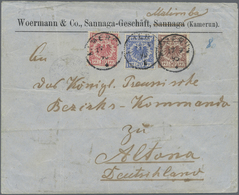 Malimba
Woermann & Co., Sannaga-Geschäft, Sannaga (Kamerun).
An
das Königl. Preussische
Bezirks-Kommando
zu
Altona
Deutschland